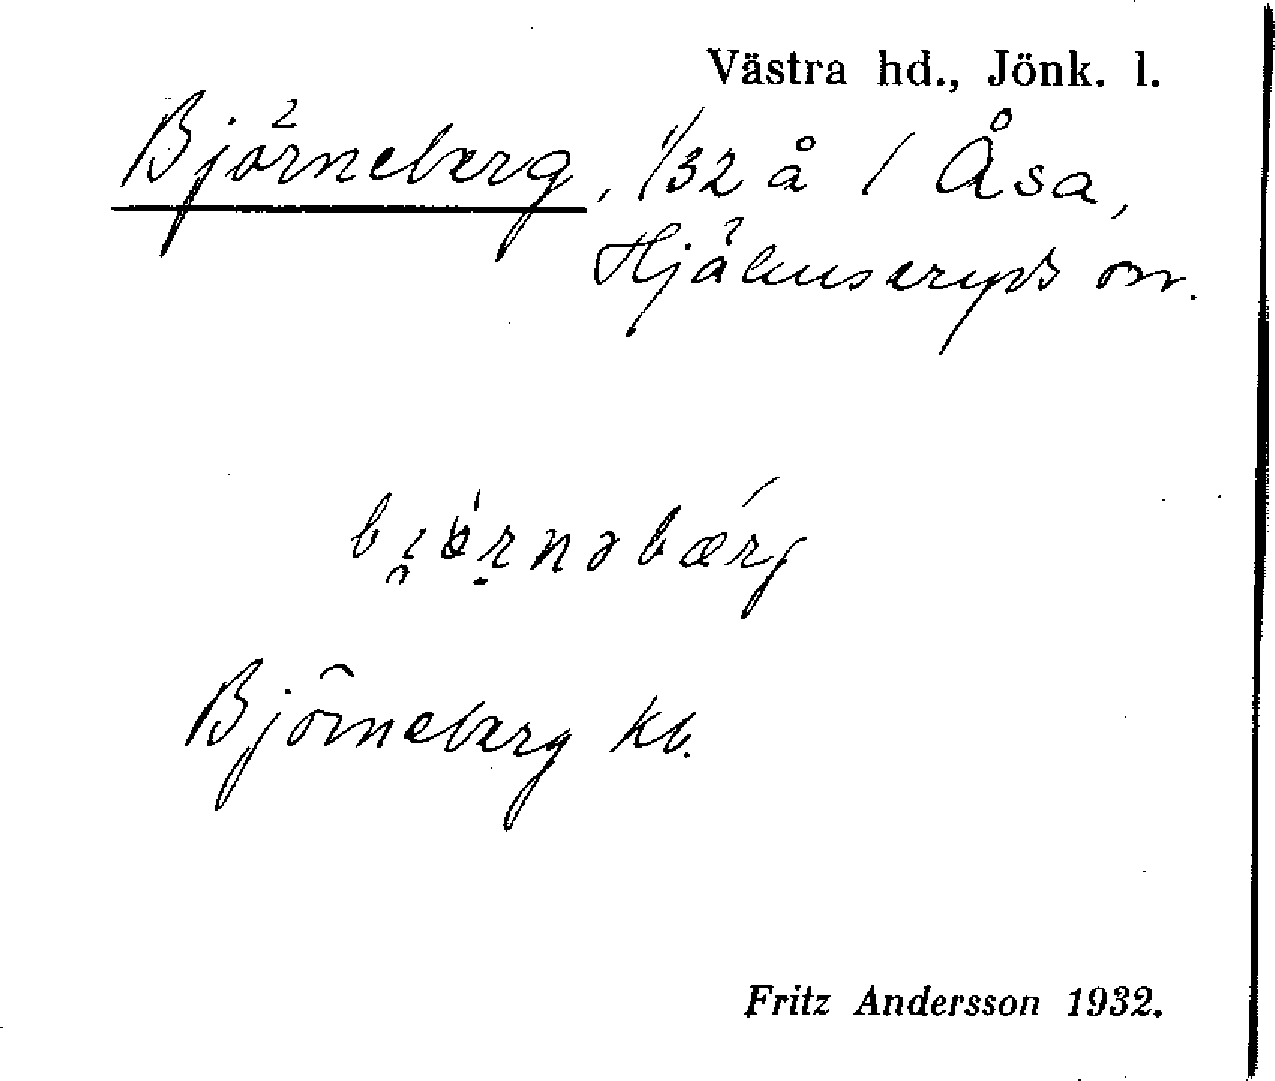 Västra hd., Jönk. l.
Björneberg, 1/32 å 1 Åsa,
Hjälmseryds sn.
bi̯ö̀rnəbærg
Björneberg kb.
Fritz Andersson 1932.